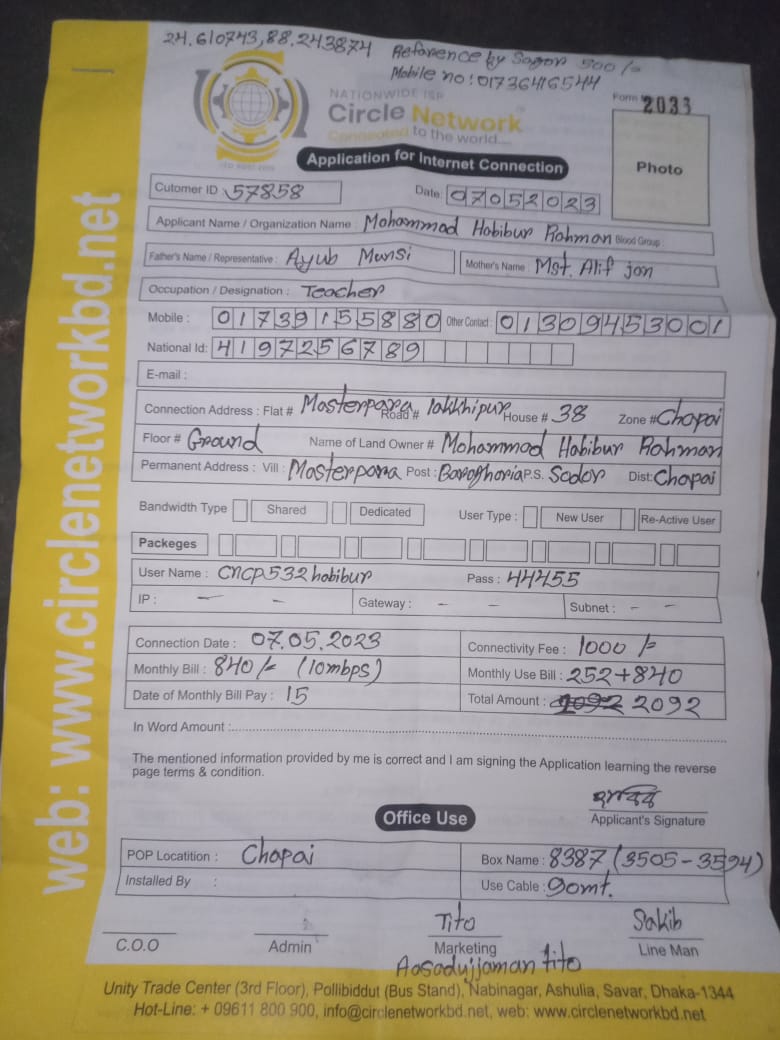 24.610743,88.243874 Reference by Sagor 500/-
Mobile no: 01736416544
NATIONWIDE ISP
Circle Network
Connected to the world....
Form No 2033
Photo
Application for Internet Connection
Cutomer ID 57858 Date: 07052023
Applicant Name / Organization Name : Mohammad Habibur Rahman Blood Group :
Father's Name / Representative : Ayub Munsi Mother's Name : Mst. Alif jan
Occupation / Designation : Teacher
Mobile : 01739155880 Other Contact : 01309453001
National Id: 4197256789
E-mail :
Connection Address : Flat # Masterpara Road # lakkhipur House # 38 Zone # Chapai
Floor # Ground Name of Land Owner # Mohammad Habibur Rahman
Permanent Address : Vill : Masterpara Post : Baroghoria P.S. Sador Dist: Chapai
Bandwidth Type Shared Dedicated User Type : New User Re-Active User
Packeges
User Name : cncp532habibur Pass : 44455
IP : - - Gateway : - - Subnet : - -
Connection Date : 07.05.2023 Connectivity Fee : 1000/-
Monthly Bill : 840/- (10mbps) Monthly Use Bill : 252+840
Date of Monthly Bill Pay : 15 Total Amount : 2092
In Word Amount :
The mentioned information provided by me is correct and I am signing the Application learning the reverse
page terms & condition.
হাবিব
Applicant's Signature
Office Use
POP Locatition : Chapai Box Name : 8387 (3505-3594)
Installed By : Use Cable : 90mt.
Tito Sakib
C.O.O Admin Marketing Line Man
Aasadujjaman tito
Unity Trade Center (3rd Floor), Pollibiddut (Bus Stand), Nabinagar, Ashulia, Savar, Dhaka-1344
Hot-Line: + 09611 800 900, info@circlenetworkbd.net, web: www.circlenetworkbd.net
web: www.circlenetworkbd.net